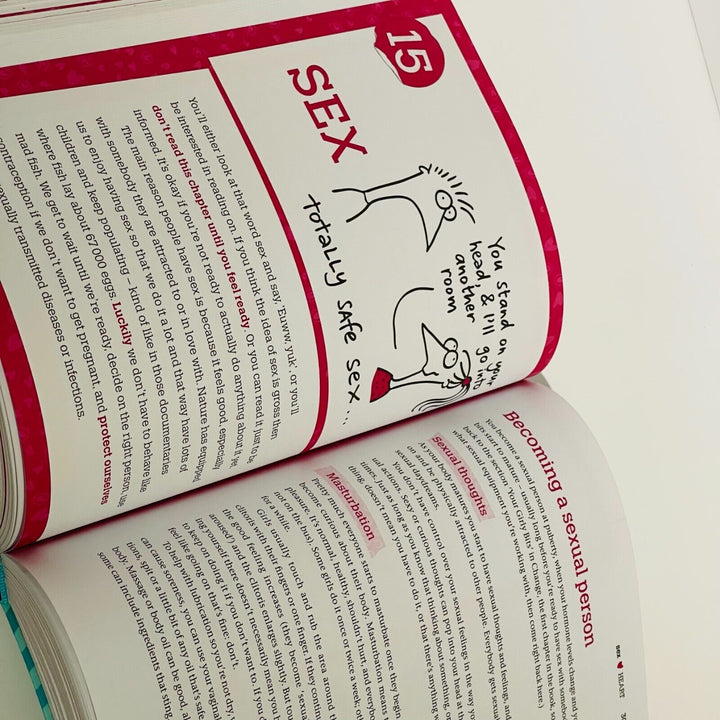 15
SEX
You stand on your
head, & I'll go into
another
room
totally safe sex...
You'll either look at that word sex and say, 'Euww, yuk', or you'll
be interested in reading on. If you think the idea of sex is gross then
don't read this chapter until you feel ready. Or you can read it just to be
informed. It's okay if you're not ready to actually do anything about it yet.
The main reason people have sex is because it feels good, especially
with somebody they are attracted to or in love with. Nature has equipped
us to enjoy having sex so that we do it a lot and that way have lots of
children and keep populating – kind of like in those documentaries
where fish lay about 67 000 eggs. Luckily we don't have to behave like
mad fish. We get to wait until we're ready, decide on the right person, use
contraception if we don't want to get pregnant, and protect ourselves
sexually transmitted diseases or infections.
sex ♥ HEART
Becoming a sexual person
you become a sexual person at puberty, when your hormone levels change and
bits start to mature – usually long before you're ready to have sex with
back to the section 'Your Girly Bits' in Change, the first chapter in the book,
what sexual equipment you're working with, then come right back here.)
Sexual thoughts
As your body matures you start to have sexual thoughts and feelings,
on and be physically attracted to other people. Everybody gets
sexual daydreams.
You don't have control over your sexual feelings in the way
ual actions. Sexy or curious thoughts can pop into your head at
times. Just as long as you know that thinking about something,
thing, doesn't mean you have to do it, or that there's anything
Masturbation
Pretty much everyone starts to masturbate once they
become curious about their body. Masturbation means
pleasure. It's normal, healthy, shouldn't hurt, and
not on the bus). Some girls do it once or twice a week,
for a while.
Girls usually touch and rub the area around
clitoris with their fingers or one finger. If they
the good feeling increases (they become
aroused) and the clitoris enlarges slightly. But
ing yourself there doesn't necessarily mean
to keep on doing it if you don't want to. If you
feel like going on that's fine: don't.
To help with lubrication so you're not dry,
can cause soreness, you can use your
tions, spit or a little bit of any oil that's safe
body. Massage or body oil can be good,
some can include ingredients that sting